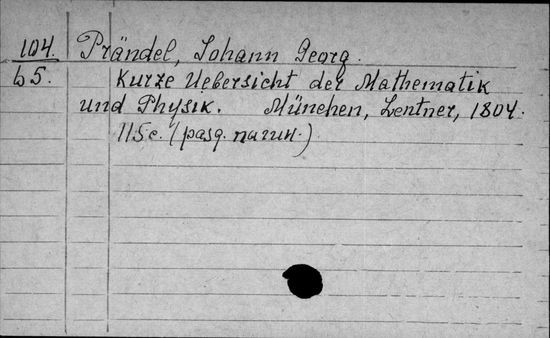 104. Prändel, Johann Georg.
65. Kurze Uebersicht der Mathematik
und Physik. München, Lentner, 1804.
115c. (разд. пагин.)